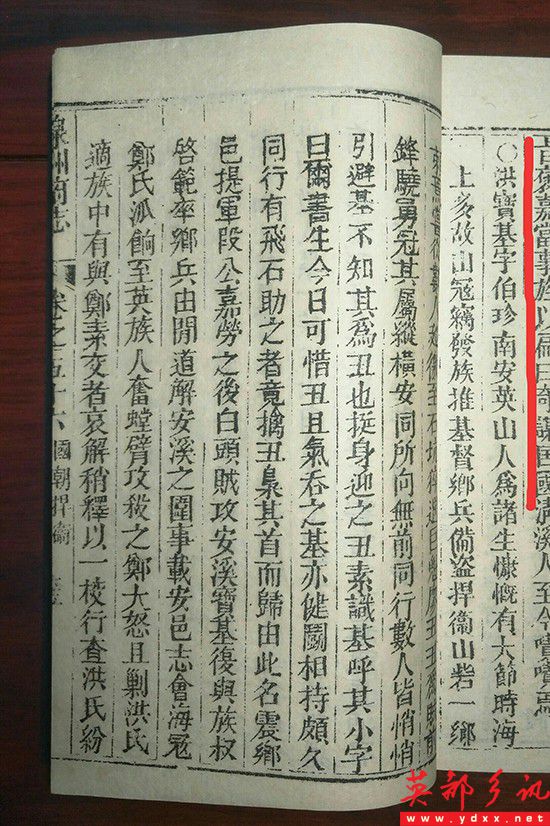 嘉當事旌以扁曰奇謀匡國溪人至今嘖嘖焉
○洪寶基字伯珍南安英山人爲諸生慷慨有大節時海
上多故山寇竊發族推基督鄉兵備盜捍衞山砦一鄉
鋒驍勇冠其屬縱橫安同所向無前同行數人皆悄悄
引避基不知其爲丑也挺身迎之丑素識基呼其小字
曰爾書生今日可惜丑且氣吞之基亦健鬬相持頗久
同行有飛石助之者竟擒丑梟其首而歸由此名震鄉
邑提軍段公嘉勞之後白頭賊攻安溪寶基復與族叔
啓範率鄉兵由間道解安溪之圍事載安邑志會海寇
鄭氏派餉至英族人奮螳臂攻殺之鄭大怒且剿洪氏
適族中有與鄭素交者哀解稍釋以一校行查洪氏紛
泉州府志 卷之五十六 國朝捍衞
英部乡讯
www.ydxx.net